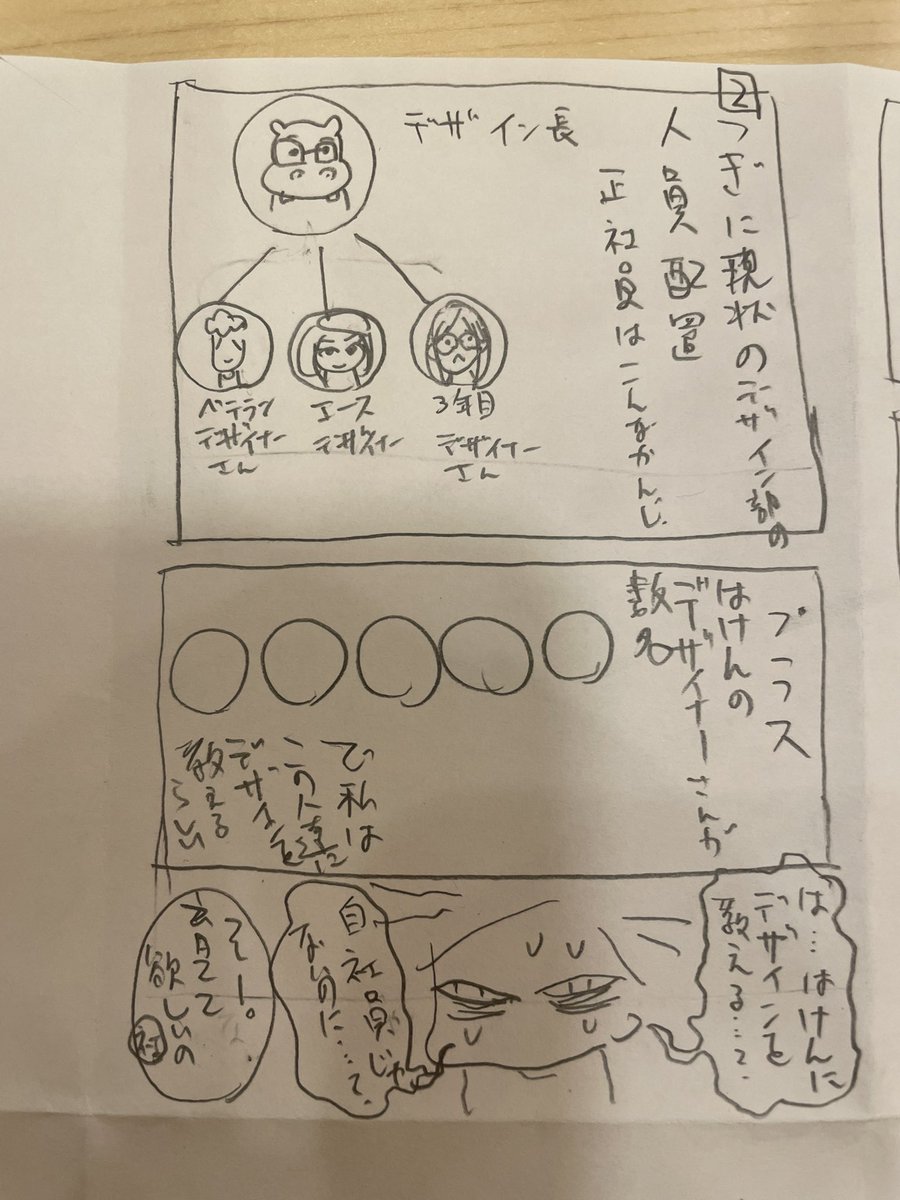 2
つぎに現状のデザイン部の
人員配置
正社員はこんなかんじ
デザイン長
3年目
デザイナー
さん
エース
デザイナー
ベテラン
デザイナー
さん
プラス
はけんの
デザイナーさんが
数名
で私は
この人達に
デザインを
教える
らしい
は…はけんに
デザインを
教える…?
自社員じゃ
ないのに…?
そー。
育てて
欲しいの
社